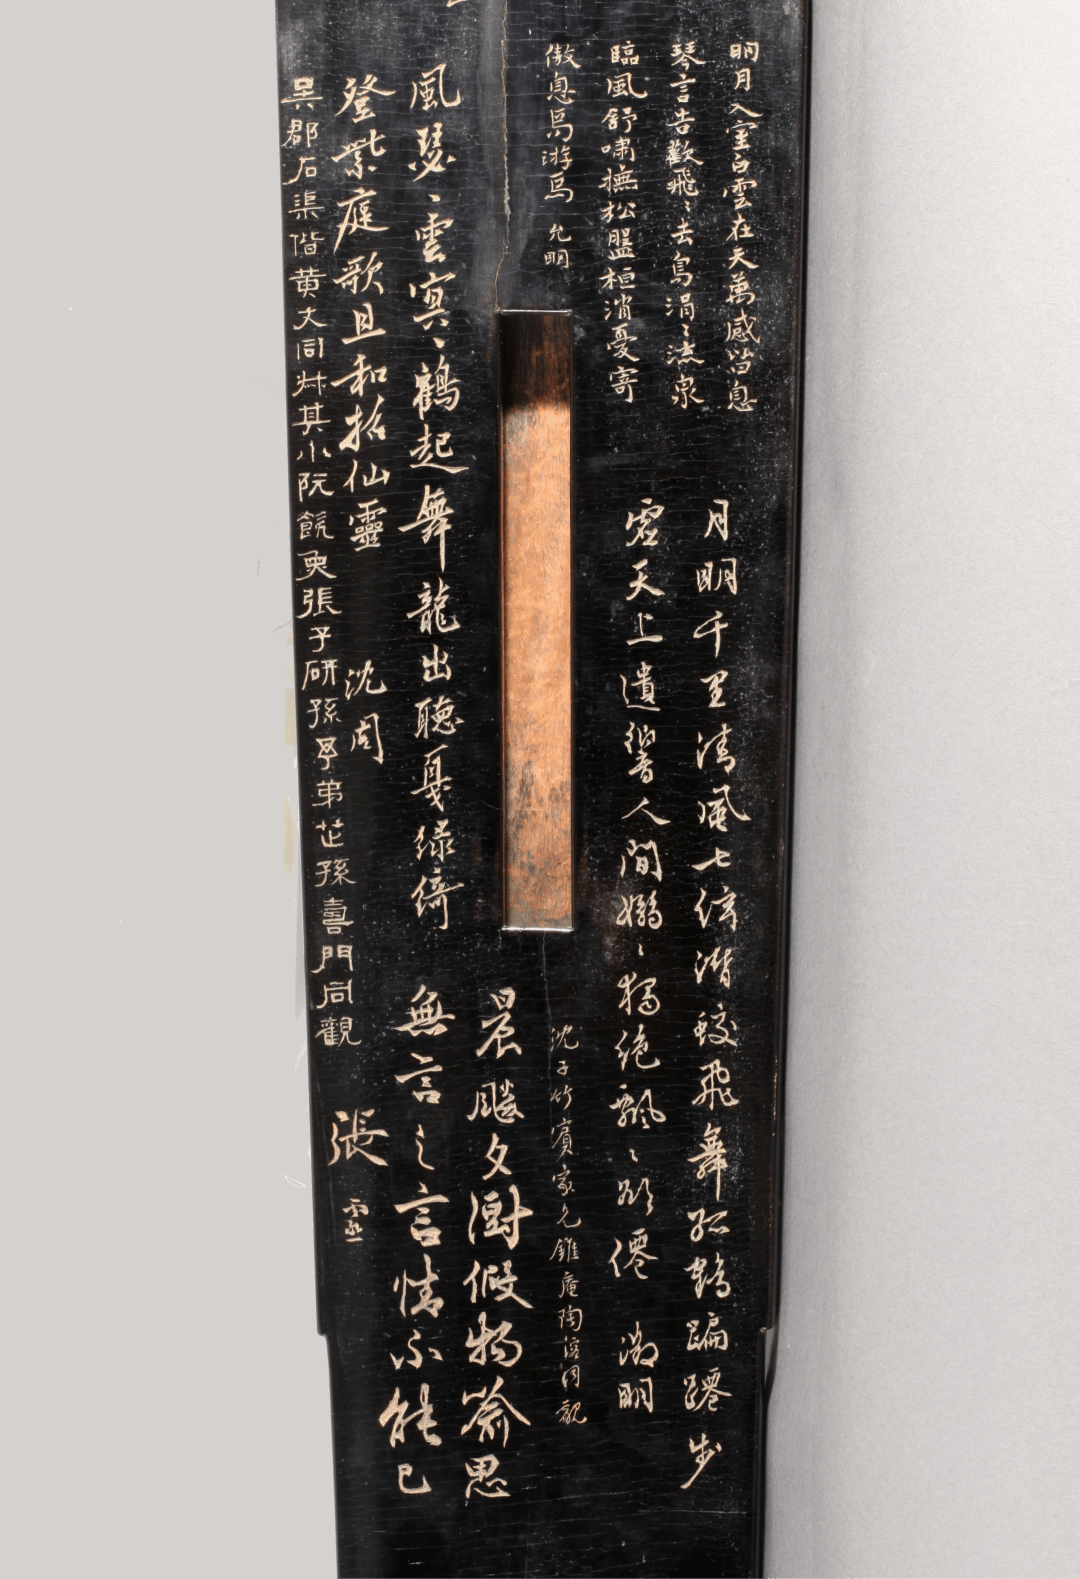 明月入室白雲在天萬感皆息
琴言告歡飛〻去鳥涓〻流泉
臨風舒嘯撫松盤桓消憂寄
傲息焉游焉 允明
月明千里清風七弦潛蛟飛舞孤鶴蹁躚步
虛天上遺響人間嫋〻獨絕飄〻欲僊 徵明
風瑟〻雲冥〻鶴起舞龍出聽戛綠綺
登紫庭歌且和招仙靈 沈周
吳郡石渠偕黃文同弟其小阮
張子研孫
弟芷孫喜門同觀
沈子竹賓家兄錐庵陶溶同觀
晨飈夕澍假物喻思
無言之言情不能已
張靈